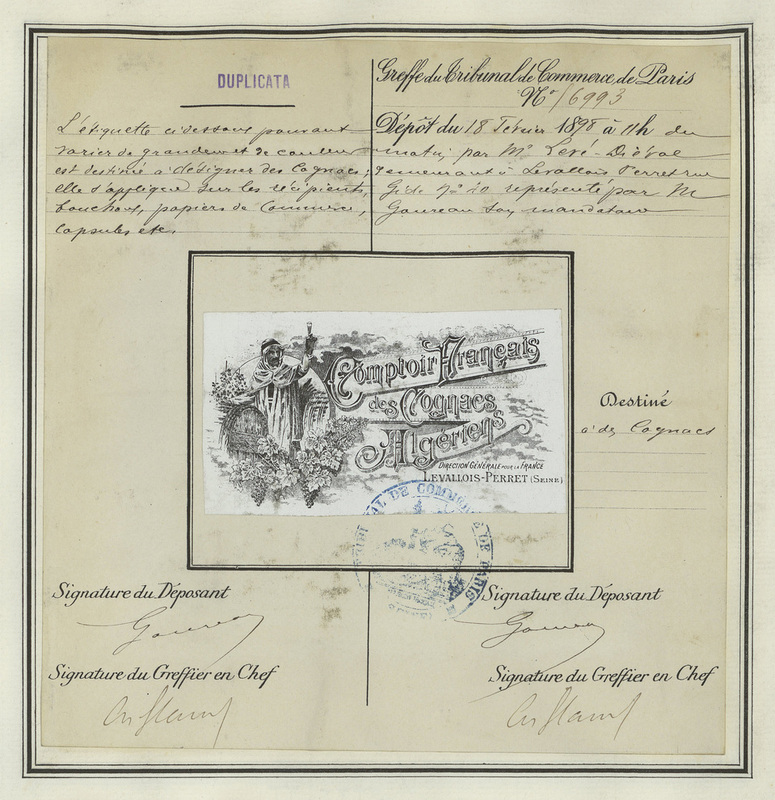 DUPLICATA
L'étiquette ci dessous pouvant
varier de grandeur et de couleur
est destiné a désigner des Cognacs;
elle s'applique sur les récipients,
bouchons, papiers de Commerce,
Capsules etc.
Greffe du Tribunal de Commerce de Paris
No 56993
Dépôt du 18 Février 1898 à 11h du
matin par Mr Levé-Diéval
demeurant à Levallois Perret rue
Gide No 20 représenté par M
Goureau son mandataire
Comptoir Français
des Cognacs
Algériens
DIRECTION GÉNÉRALE POUR LA FRANCE
LEVALLOIS-PERRET (SEINE)
Destiné
à des Cognacs
TRIBUNAL DE COMMERCE DE PARIS
Signature du Déposant
Goureau
Signature du Greffier en Chef
Signature du Déposant
Goureau
Signature du Greffier en Chef